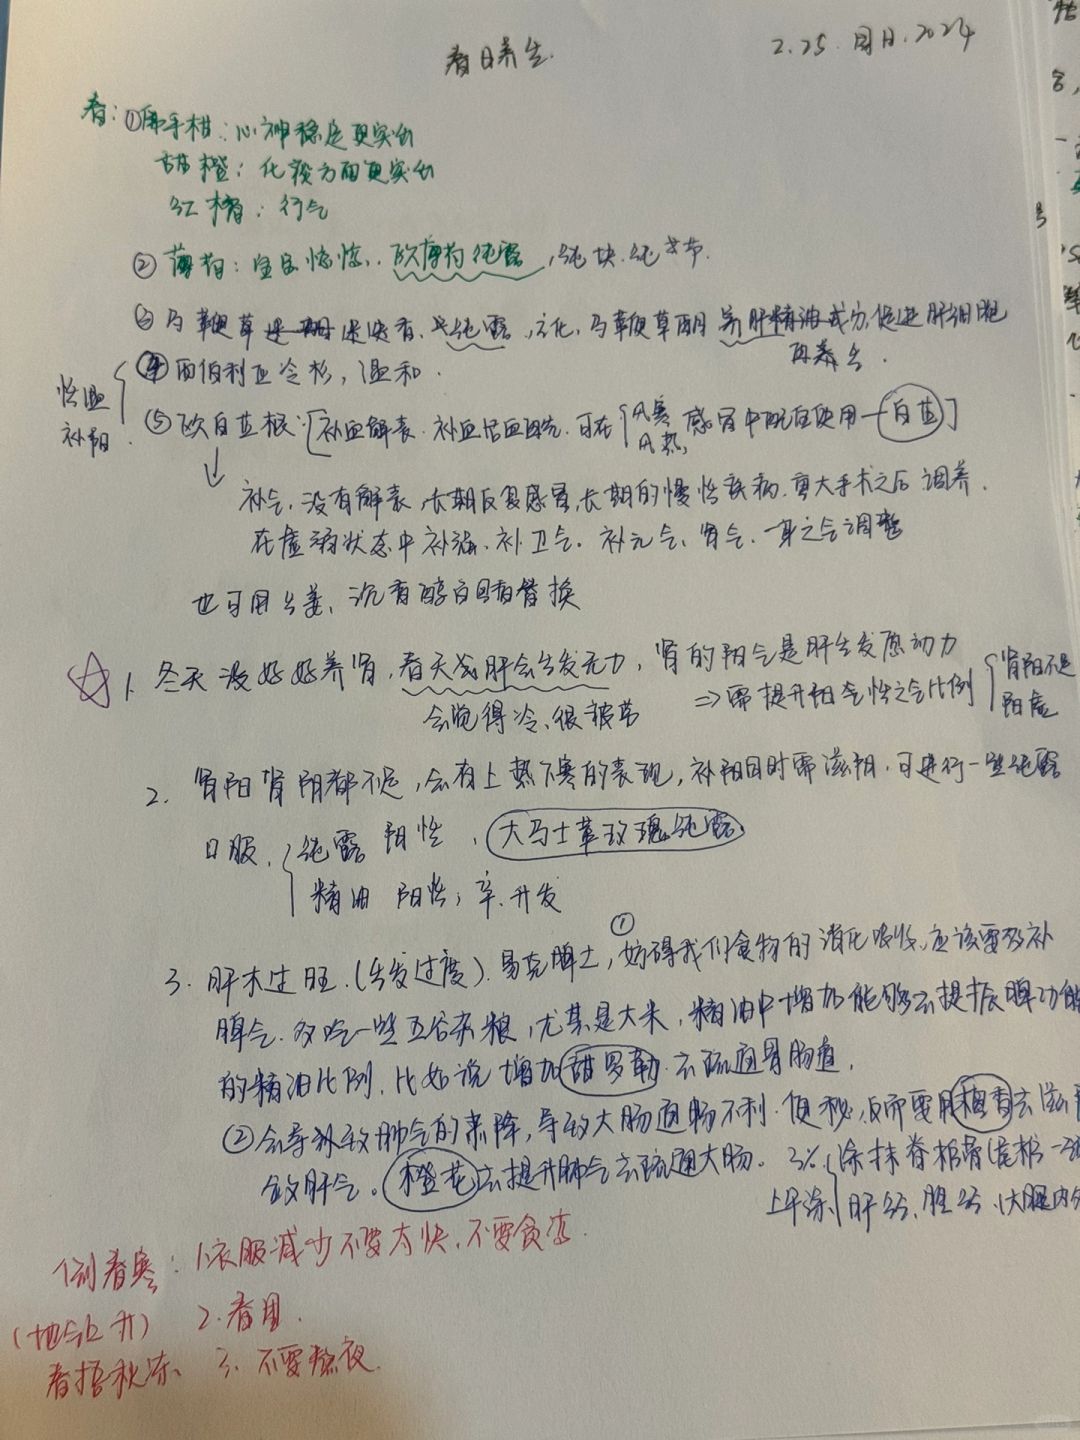 春日养生.
2.25. 周日. 2024
春: ①佛手柑: 心神稳定更突出
甜橙: 化痰方面更突出
红橘: 行气
② 薄荷: 欧薄荷纯露, 纯
③ 马鞭草 迷迭香. 纯露, 马鞭草酮 养肝精油成分, 促进肝细胞
再养分.
④ 西伯利亚冷杉, 温和.
补阳.
⑤ 欧白芷根: [补血解表. 补血活血 可在 {风寒 风热, 感冒中既可使用—白芷]
补气, 没有解表, 长期反复感冒, 长期的慢性疾病. 重大手术之后 调养.
在虚弱状态中补强. 补卫气. 补元气、肾气、一身之气调整
也可用生姜、沉香醇百里香替换
☆ 1. 冬天没好好养肾, 春天或肝会生发无力, 肾的阳气是肝生发原动力
会觉得冷、很疲劳
⇒需提升阳气性之气比例 {肾阳不足 阳虚
2. 肾阳肾阴都不足, 会有上热下寒的表现, 补阳同时需滋阴. 可进行一些纯露
口服. {纯露 阴性. 大马士革玫瑰纯露
精油 阳性, 辛. 升发
3. 肝木过旺. (生发过度). 易克脾土, ①妨碍我们食物的消化吸收, 应该要多补
脾气. 多吃一些五谷杂粮, 尤其是大米, 精油中增加能够去提振脾功能
的精油比例. 比如说增加甜罗勒. 去疏通胃肠道.
②会导致肺气的肃降, 导致大肠通畅不利. 便秘, 反而要用檀香去滋
敛肝气。橙花去提升肺气去疏通大肠. 3% {涂抹脊椎骨(尾椎
上下涂, 肝经、胆经、(大腿内
倒春寒: 1.衣服减少不要太快, 不要贪凉.
(地气上升) 2. 春困.
春捂秋冻、3. 不要熬夜.